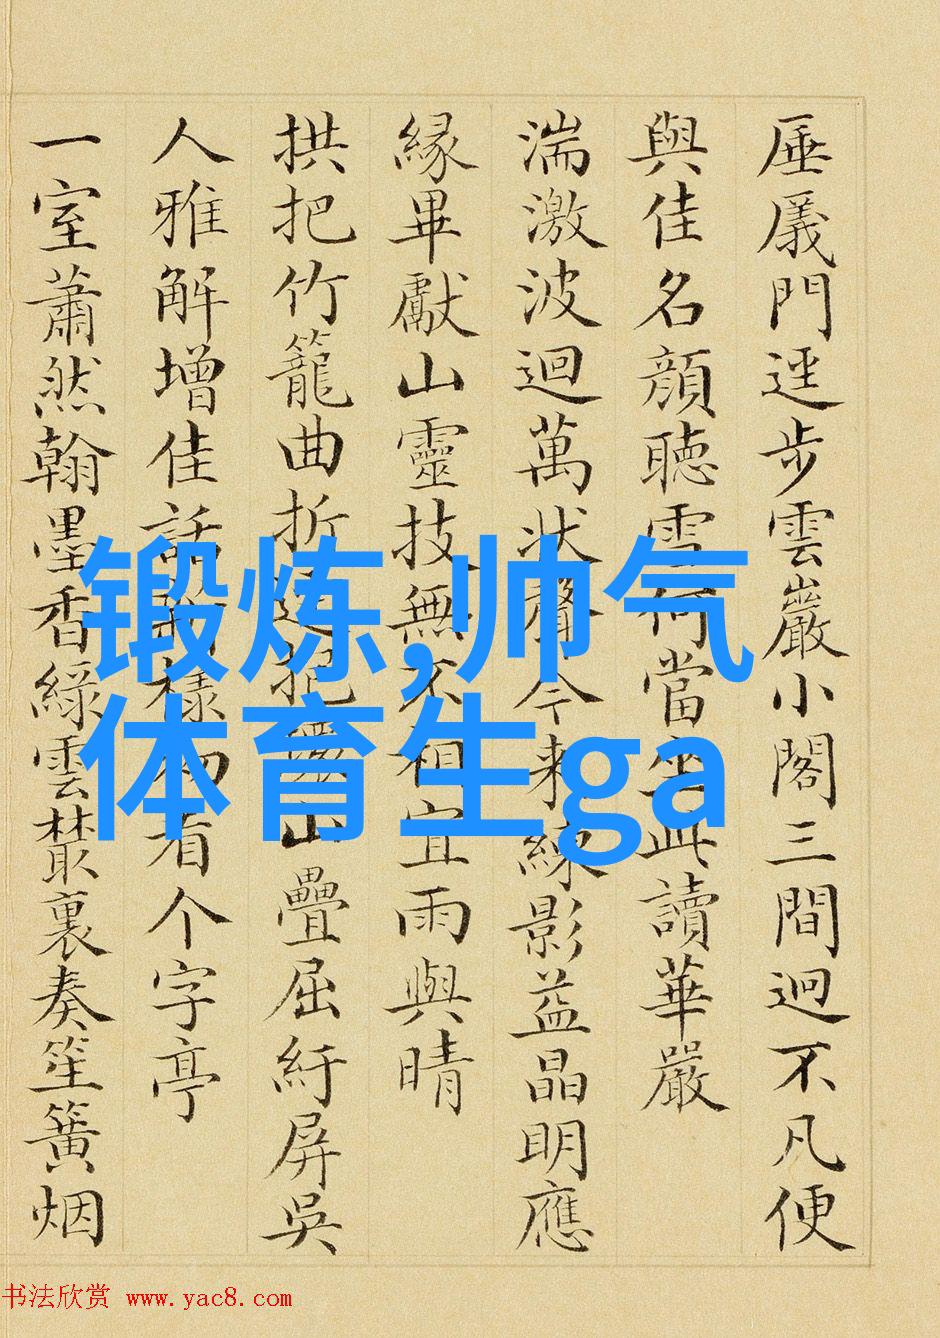 厜㕒門逕步雲巖小閣三間迥不凡便
與佳名顏聽雪何當坐此讀華嚴
湍激波迴萬狀聲今來練影益晶明應
緣畢獻山靈技無不相宜雨與晴
拱把竹籠曲折山疊屈紆屏吳
人雅解增佳話有个字亭
一室蕭然翰墨香綠雲叢裏奏笙簧烟
锻炼,帅气
体育生ga
书法欣赏 www.yac8.com